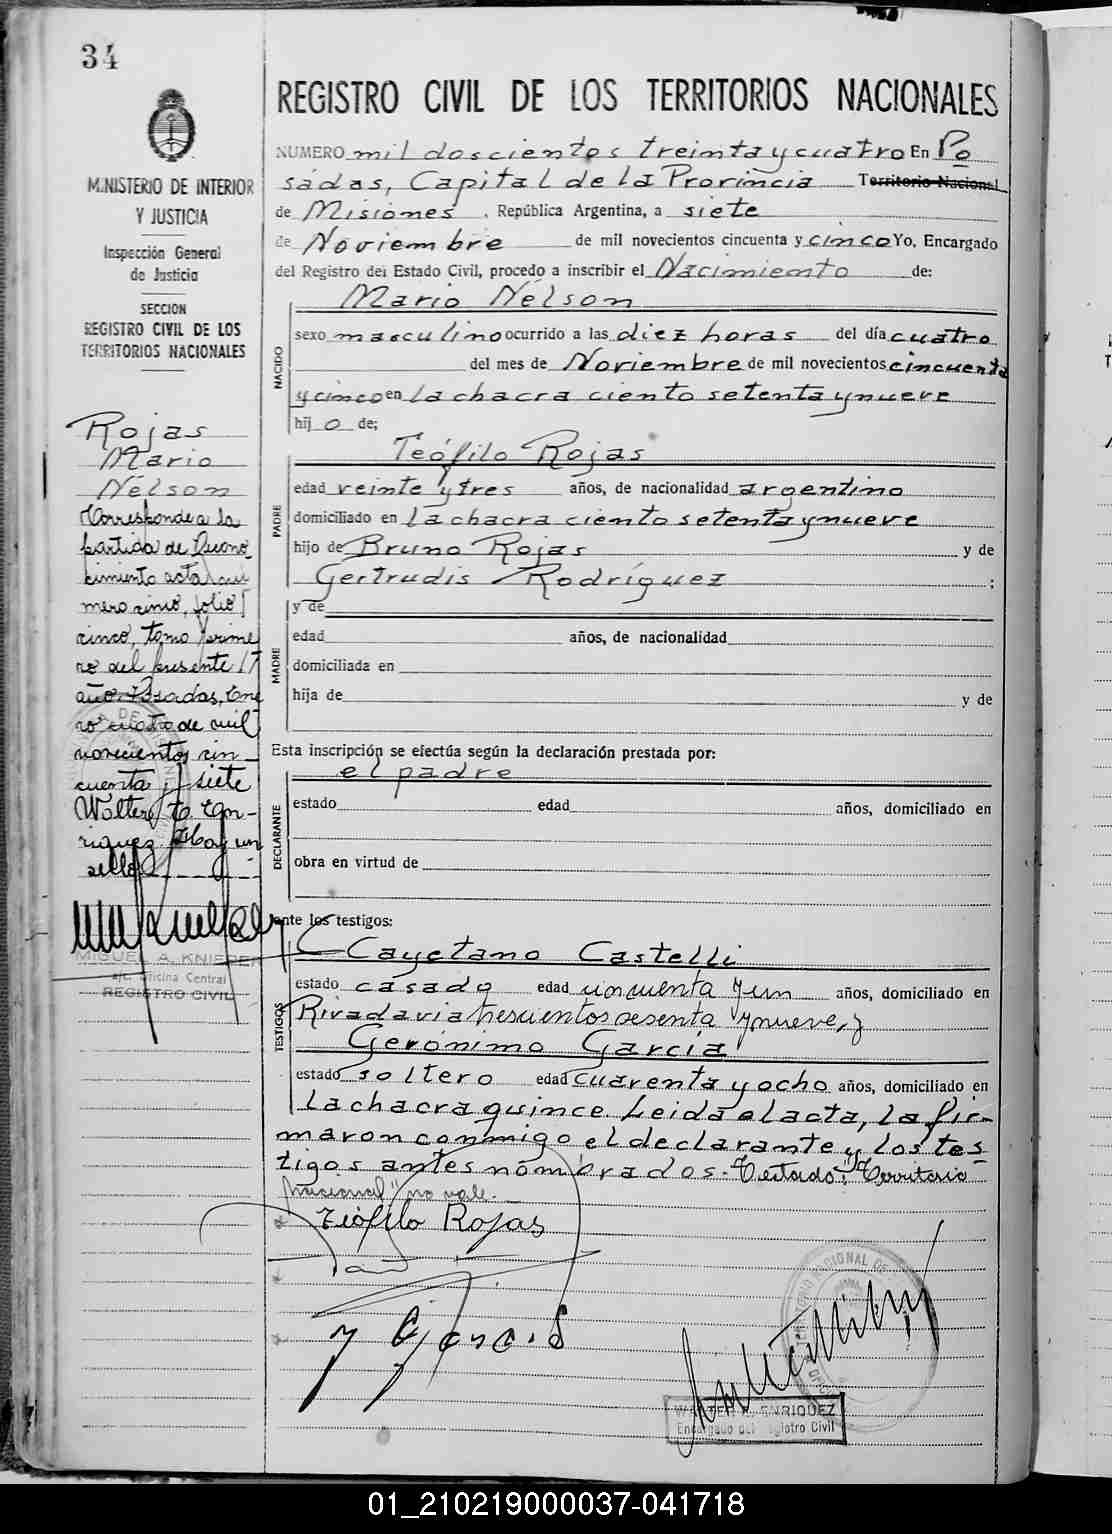 34
MINISTERIO DE INTERIOR
Y JUSTICIA
Inspección General
de Justicia
SECCION
REGISTRO CIVIL DE LOS
TERRITORIOS NACIONALES
Rojas
Mario
Nélson
Corresponde a la
partida de Recono-
cimiento acta nú
mero cinco, folio
cinco, tomo prime
ro del presente
año. Posadas, Ene
ro cuatro de mil
novecientos cin
cuenta y siete
Walter E. En-
riquez. Hay un
sello
MIGUEL A. KNIEPER
a/c. Oficina Central
REGISTRO CIVIL
REGISTRO CIVIL DE LOS TERRITORIOS NACIONALES
NUMERO mil doscientos treinta y cuatro En Po
sadas, Capital de la Provincia Territorio Nacional
de Misiones, República Argentina, a siete
de Noviembre de mil novecientos cincuenta y cinco Yo, Encargado
del Registro del Estado Civil, procedo a inscribir el Nacimiento de:
NACIDO
Mario Nélson
sexo masculino ocurrido a las diez horas del día cuatro
del mes de Noviembre de mil novecientos cincuenta
y cinco en la chacra ciento setenta y nueve
hijo de;
PADRE
Teófilo Rojas
edad veinte y tres años, de nacionalidad argentino
domiciliado en la chacra ciento setenta y nueve
hijo de Bruno Rojas y de
Gertrudis Rodríguez ;
MADRE
y de
edad años, de nacionalidad
domiciliada en
hija de y de
Esta inscripción se efectúa según la declaración prestada por:
DECLARANTE
el padre
estado edad años, domiciliado en
obra en virtud de
ante los testigos:
TESTIGOS
Cayetano Castelli
estado casado edad cincuenta y un años, domiciliado en
Rivadavia trescientos sesenta y nueve, y
Gerónimo García
estado soltero edad cuarenta y ocho años, domiciliado en
la chacra quince. Leida el acta, la fir-
maron conmigo el declarante y los tes-
tigos antes nombrados.- Testado: "Territorio
Nacional" no vale.
Teófilo Rojas
WALTER E. ENRIQUEZ
Encargado del Registro Civil
01_210219000037-041718